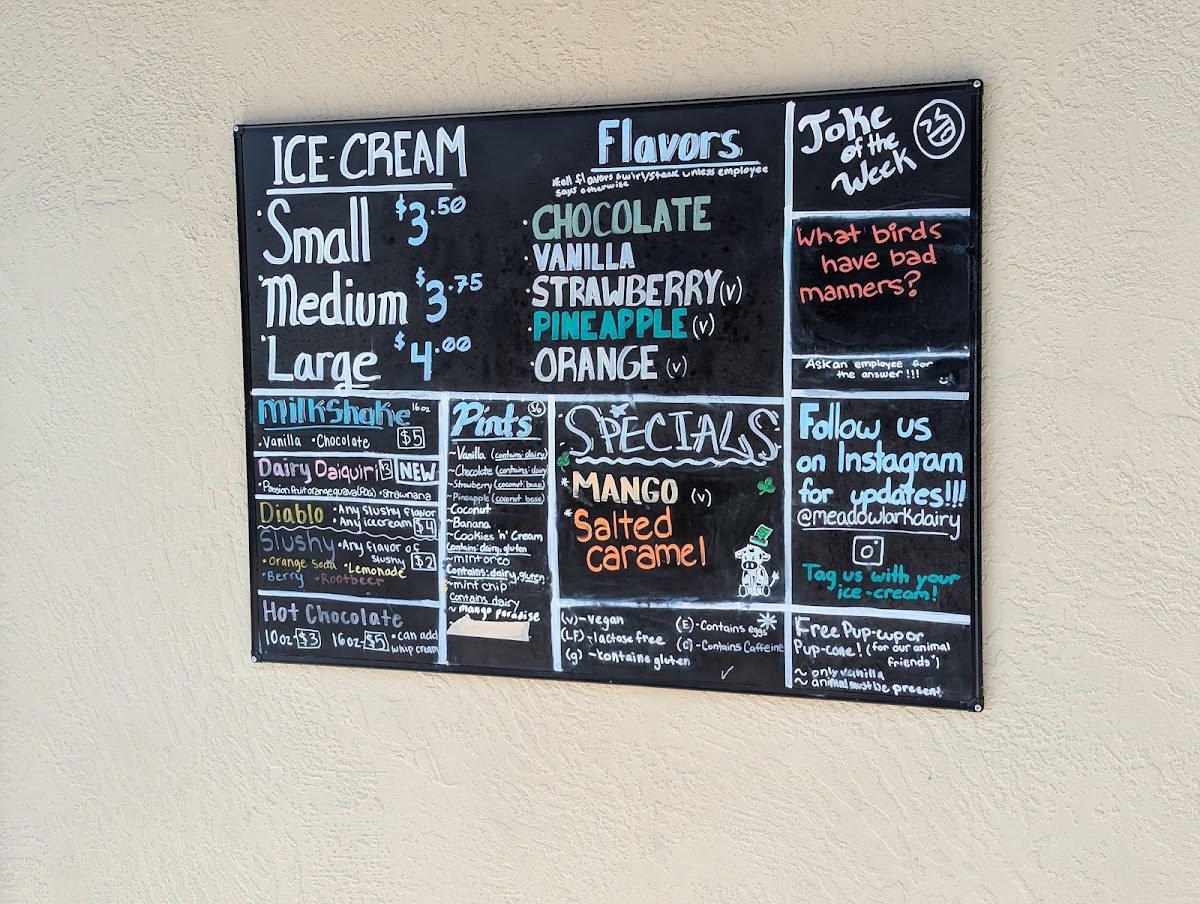 ICE-CREAM
• Small $3.50
• Medium $3.75
• Large $4.00
Flavors
*all flavors swirl/stack unless employee
says otherwise
• CHOCOLATE
• VANILLA
• STRAWBERRY (v)
• PINEAPPLE (v)
• ORANGE (v)
Joke
of the
Week
What birds
have bad
manners?
Ask an employee for
the answer!!!
Milkshake 16oz
• Vanilla • Chocolate $5
Dairy Daiquiri NEW
• Passion fruit orange guava (POG) • Strawnana
Diablo • Any slushy flavor
• Any icecream $4
Slushy • Any flavor of
slushy $2
• Orange Soda • Lemonade
• Berry • Rootbeer
Hot Chocolate
10oz-$3 16oz-$5 • can add
whip cream
Pints $6
~Vanilla (contains: dairy)
~Chocolate (contains: dairy)
~Strawberry (coconut base)
~Pineapple (coconut base)
~Coconut
~Banana
~Cookies 'n' Cream
Contains: dairy, gluten
~mint oreo
Contains: dairy, gluten
~mint chip
Contains dairy
~ mango paradise
SPECIALS
* MANGO (v)
* Salted
caramel
(v)-vegan
(LF)-lactose free
(g) -kontains gluten
(E)-Contains eggs
(C)-Contains Caffeine
Follow us
on Instagram
for updates!!!
@meadowlarkdairy
Tag us with your
ice-cream!
Free Pup-cup or
Pup-cone! (for our animal
friends*)
~ only vanilla
~ animal must be present